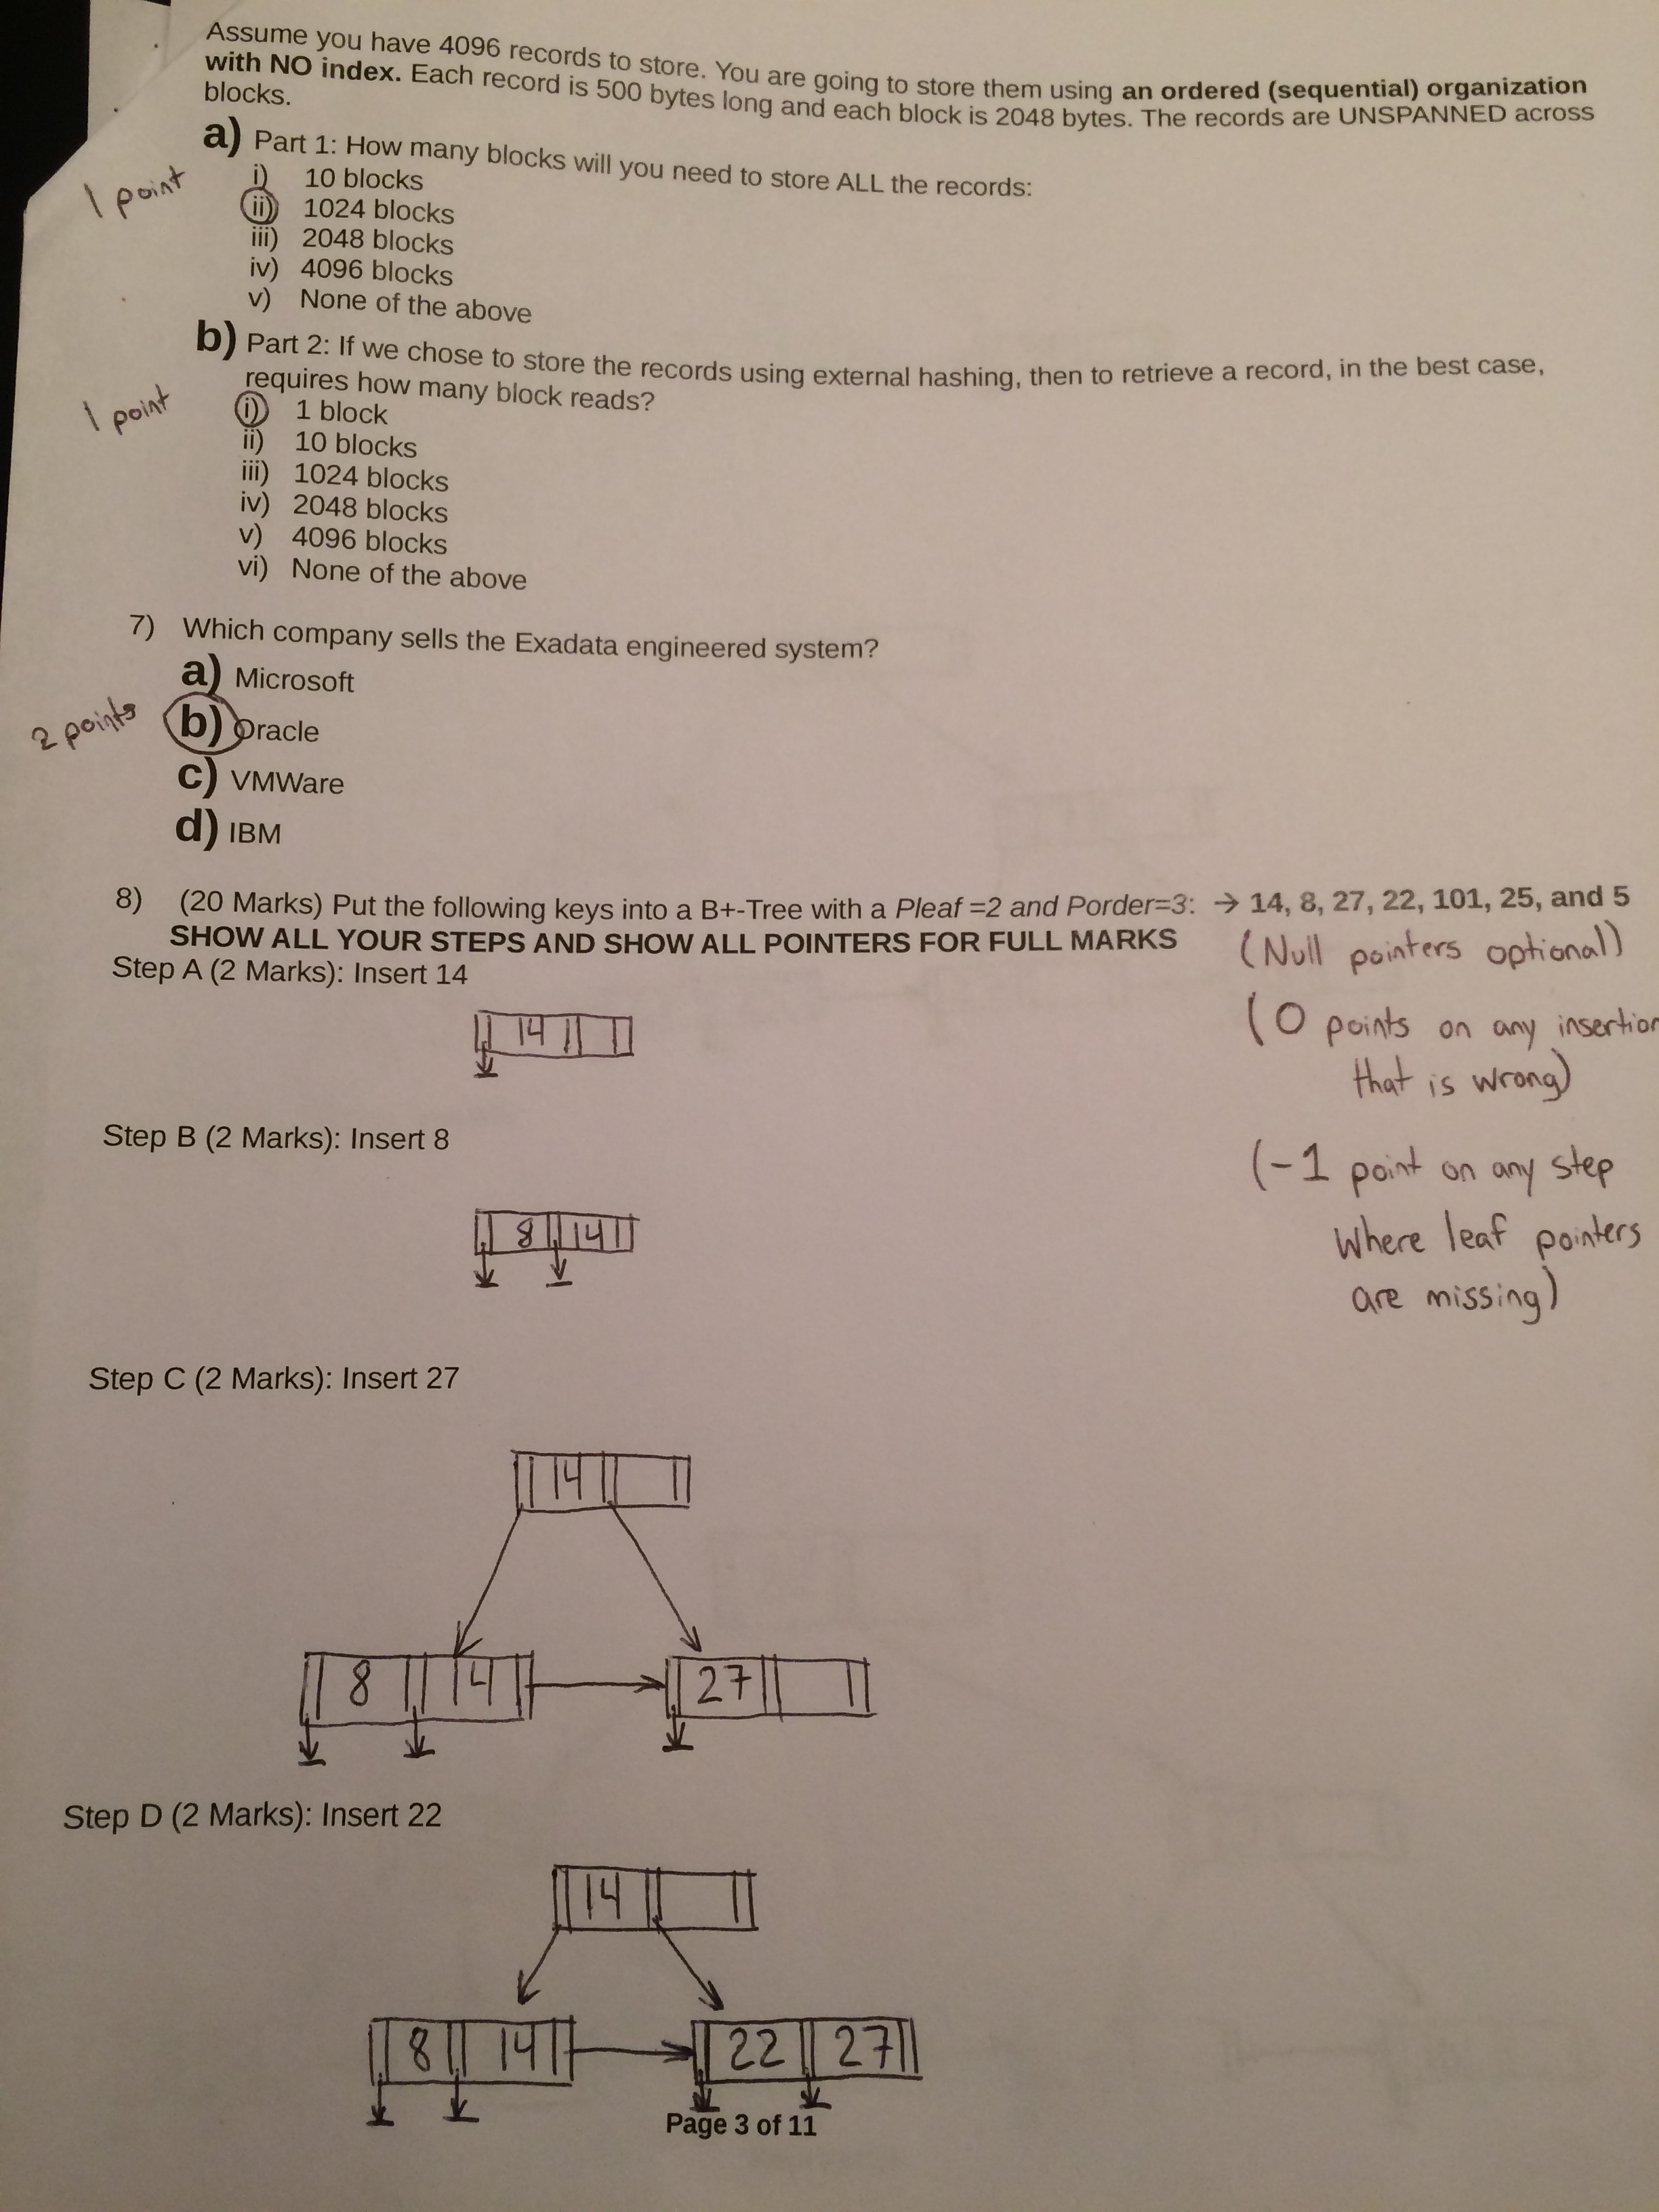 Assume you have 4096 records to store. You are going to store them using an ordered (sequential) organization
with NO index. Each record is 500 bytes long and each block is 2048 bytes. The records are UNSPANNED across
blocks.
a) Part 1: How many blocks will you need to store ALL the records:
1 point
i) 10 blocks
ii) 1024 blocks
iii) 2048 blocks
iv) 4096 blocks
v) None of the above
b) Part 2: If we chose to store the records using external hashing, then to retrieve a record, in the best case,
requires how many block reads?
1 point
i) 1 block
ii) 10 blocks
iii) 1024 blocks
iv) 2048 blocks
v) 4096 blocks
vi) None of the above
7) Which company sells the Exadata engineered system?
a) Microsoft
2 points
b) Oracle
c) VMWare
d) IBM
8) (20 Marks) Put the following keys into a B+-Tree with a Pleaf =2 and Porder=3: → 14, 8, 27, 22, 101, 25, and 5
SHOW ALL YOUR STEPS AND SHOW ALL POINTERS FOR FULL MARKS
(Null pointers optional)
Step A (2 Marks): Insert 14
14
(0 points on any insertion
that is wrong)
Step B (2 Marks): Insert 8
(-1 point on any step
where leaf pointers
are missing)
8 14
Step C (2 Marks): Insert 27
14
8 14 27
Step D (2 Marks): Insert 22
14
8 14 22 27
Page 3 of 11